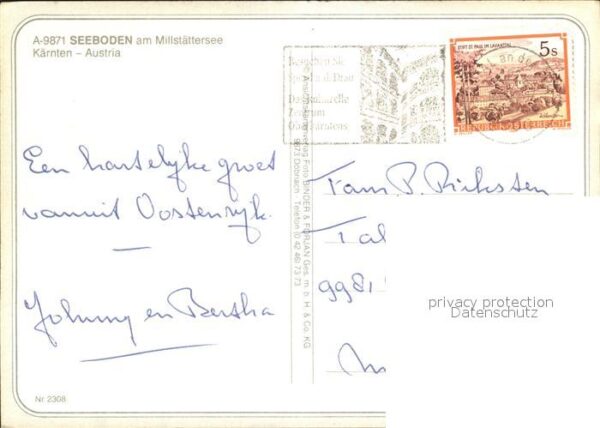 A-9871 SEEBODEN am Millstättersee
Kärnten – Austria
Besuchen Sie
Spittal a. d. Drau
Das kulturelle
Zentrum
Oberkärntens
STIFT ST. PAUL IM LAVANTTAL
5 s
REPUBLIK ÖSTERREICH
an der
Een hartelijke groet
vanuit Oostenrijk.
Johnny en Bertha
Fam. P. Diksten
Tal
9981
privacy protection
Datenschutz
Nr 2308